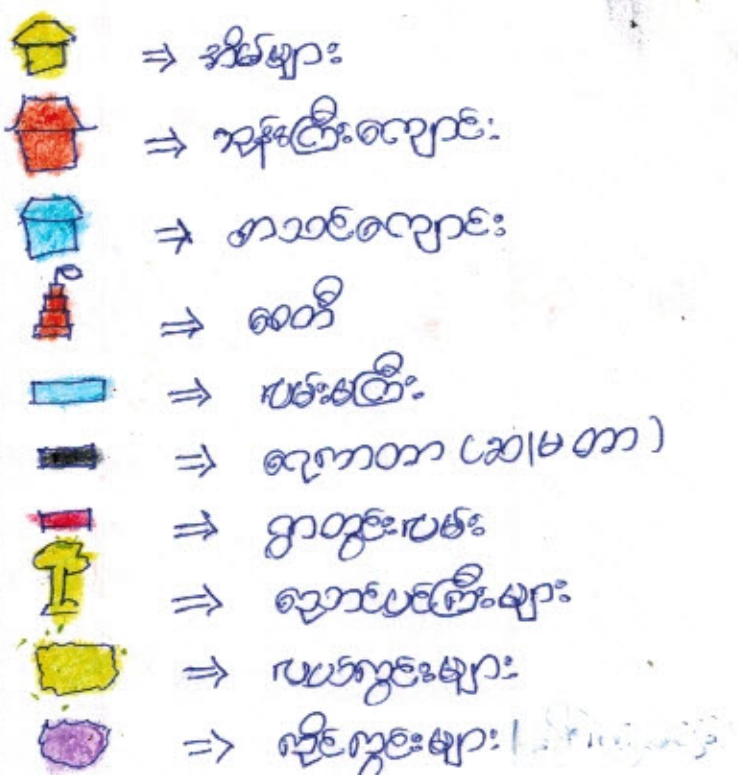 ⇒ အိမ်များ
⇒ ဘုန်းကြီးကျောင်း
⇒ စာသင်ကျောင်း
⇒ စေတီ
⇒ လမ်းမကြီး
⇒ ရေကာတာ (ဆူးမတာ)
⇒ ရွာတွင်းလမ်း
⇒ ညောင်ပင်ကြီးများ
⇒ လယ်ကွင်းများ
⇒ ကိုင်းကွင်းများ